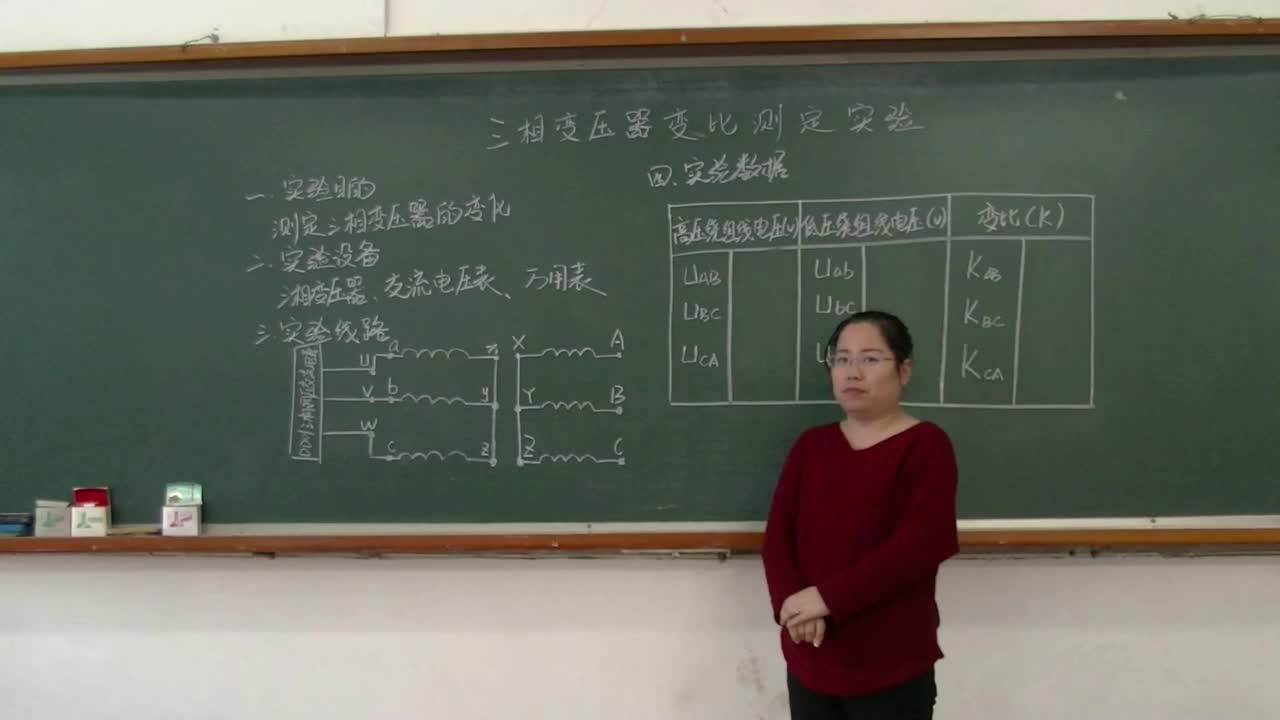 三相变压器变比测定实验
一.实验目的
测定三相变压器的变比
二.实验设备
三相变压器、交流电压表、万用表
三.实验线路
U a x X A
V b y Y B
W c z Z C
四.实验数据
高压绕组线电压(V) 低压绕组线电压(V) 变比(K)
UAB Uab KAB
UBC Ubc KBC
UCA KCA